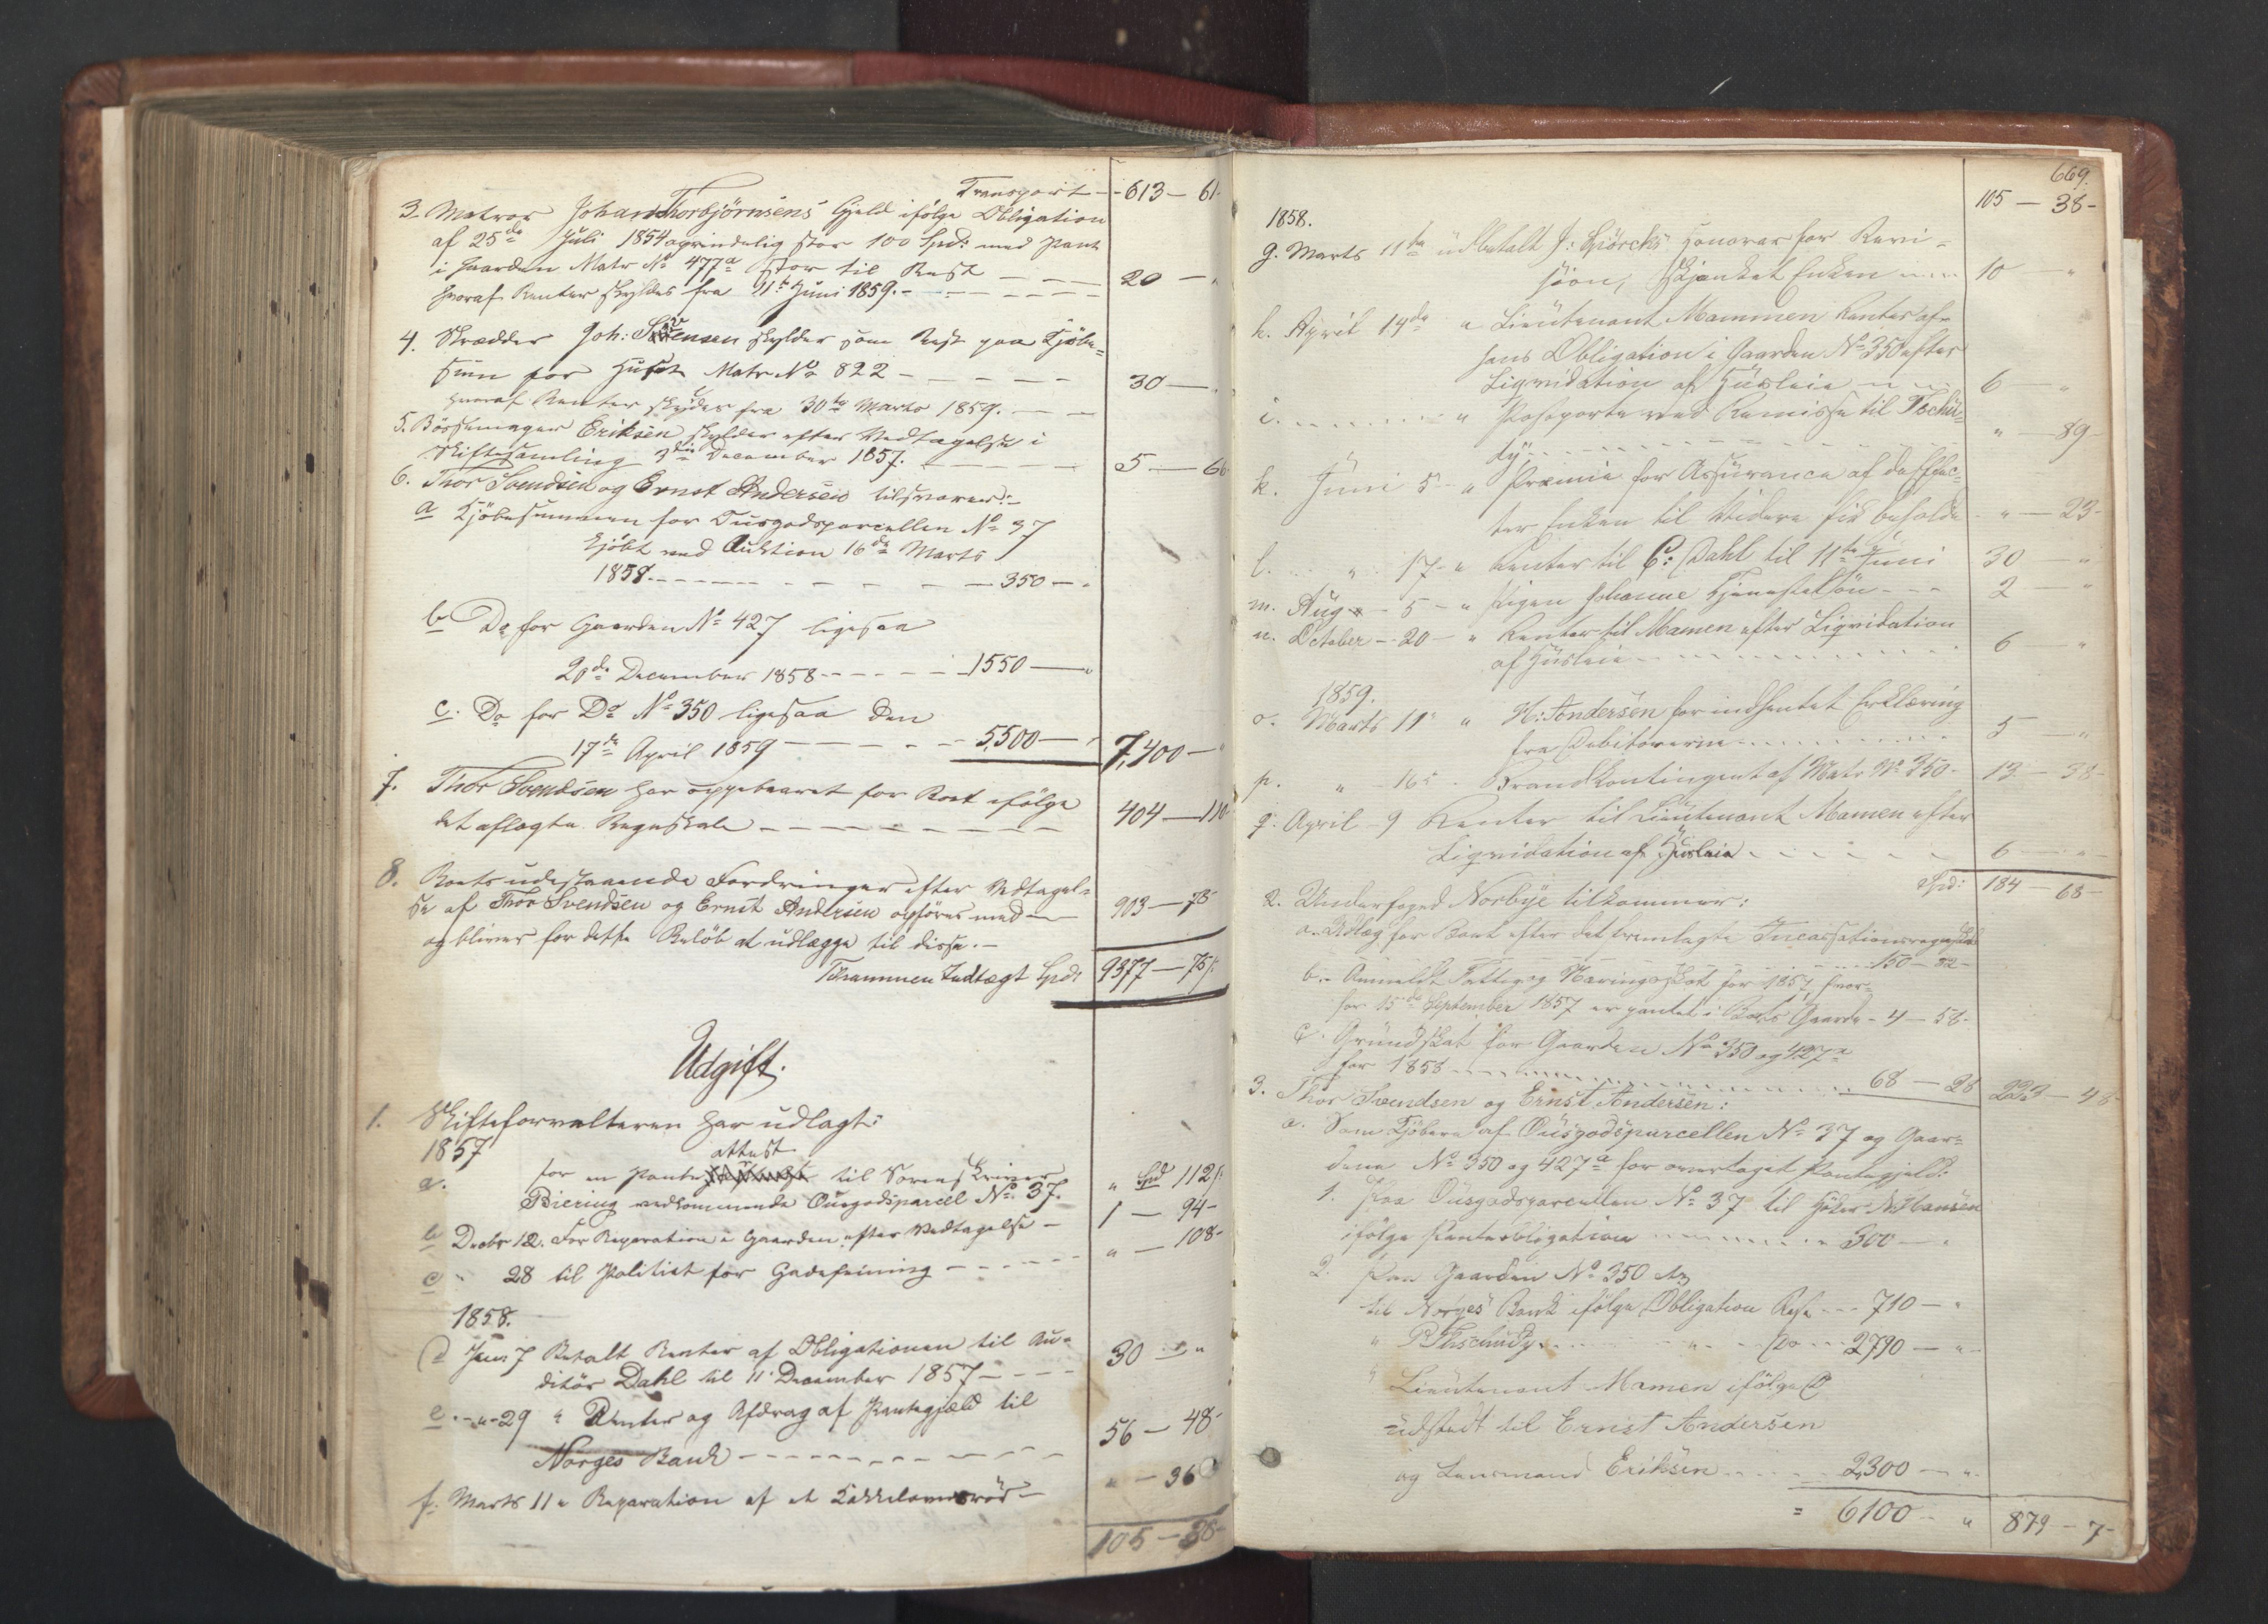 Transport - 613 - 61
3. Matros Johan Thorbjørnsens Gjeld ifølge Obligation
af 25de Juli 1854 oprindelig stor 100 Spd: med Pant
i Gaarden Matr No 477a stor til Rest - - 20 - "
hvoraf Renter skyldes fra 11te Juni 1859. - - -
4. Skrædder Joh: Sørensen skylder som Rest paa Kjøbe=
sum for Huset Matr No 822 - - - - - 30 - "
hvoraf Renter skyldes fra 30te Marts 1859. - -
5. Bøssemager Eriksen skylder efter Vedtagelse i
Skiftesamling 3die December 1857. - - - - 5 - 66
6. Thor Svendsen og Ernst Andersen tilsvarer: -
a Kjøbesummen for Ousgodsparcellen No 37
kjøbt ved Auktion 16de Marts
1858. - - - - - - - 350 - "
b Do for Gaarden No 427 ligesaa
20de December 1858 - - - - 1550 - "
c. Do for Do No 350 ligesaa den
17de April 1859 - - - - 5500 - " 7,400 - "
7. Thor Svendsen har oppebaaret for Boet ifølge
det aflagte Regnskab - - - - - - - 404 - 110
8. Boets udestaaende Fordringer efter Vedtagel=
se af Thor Svendsen og Ernst Andersen opføres med - 903 - 78
og bliver for dette Beløb at udlægge til disse. -
Tilsammen Indtægt Spd: 9377 - 75
Udgift.
1. Skifteforvalteren har udlagt:
1857
attest
a. for en Pante til Sorenskriver " Spd 112
Biering vedkommende Ousgodsparcel No 37.
b Decbr 12. For Reparation i Gaarden efter Vedtagelse - 1 - 94 -
c " 28 til Politiet for Gadefeining - - - - " - 108 -
1858.
d Janr 7 Betalt Renter af Obligationen til Au=
ditør Dahl til 11 December 1857 - - - 30 - "
e. - " - 29 " Renter og Afdrag af Pantegjæld til
Norges Bank - - - - - - - 56 - 48 -
f. Marts 11 " Reparation af et Kakkelovnsrør - " - 36
105 - 38 -
669.
105 - 38 -
1858.
g. Marts 11te udbetalt J: Honorar for Revi=
sion, skjænket Enken - - - 10 - "
h. April 14de " Lieutenant Mammen Renter af
hans Obligation i Gaarden No 350 efter
Liqvidation af Huusleie - - - 6 - "
i. - - - - " Postporto ved Remisse til Tschu=
dy - - - - - - - " - 89 -
k. Juni 5 - " Præmie for Assurance af de Effec=
ter Enken til Videre fik beholde - " - 23 -
l. " 17 - " Renter til C: Dahl til 11te Juni 30 - "
m. Aug - 5 - " Pigen Johanne Tjenesteløn - - - 2 - "
n. October - 20 - " Renter til Mamen efter Liqvidation
af Huusleie - - - - - - 6 - "
1859.
o. Marts 11 " H: Andersen for indhentet Erklæring
fra Debitorerne - - - - - - 5 - "
p. " - 16 - Brandkontingent af Matr No 350 - 13 - 38 -
q. April - 9 Renter til Lieutenant Mamen efter
Liqvidation af Huusleie - - - - - 6 - "
Spd: 184 - 68 -
2. Underfoged Norbye tilkommer:
a. Udlæg for Boet efter det fremlagte Incassationsregnskab
- - - - - 150 - 52 -
b. - Anmeldt Fattig og Næringsskat for 1857, hvor=
for 15de September 1857 er pantet i Boets Gaarde - 4 - 58 -
c. Grundskat for Gaarden No 350 og 427a
for 1858 - - - - - - 68 - 28 223 - 48
3. Thor Svendsen og Ernst Andersen:
a. Som Kjøbere af Ousgodsparcellen No 37 og Gaar=
dene No 350 og 427a for overtaget Pantegjeld:
1. Paa Ousgodsparcellen No 37 til Høker N. Hansen
ifølge Panteobligation - - - - - 300 - "
2. Paa Gaarden No 350 A3
til Norges Bank ifølge Obligation Rest - - 710 - "
" P. Tschudy - - - " - - Do - - 2790 - "
" Lieutenant Mamen ifølge D
udstedt til Ernst Andersen
og Lensmand Eriksen - - - - 2300 - "
= 6100 - " 879 - 7 -